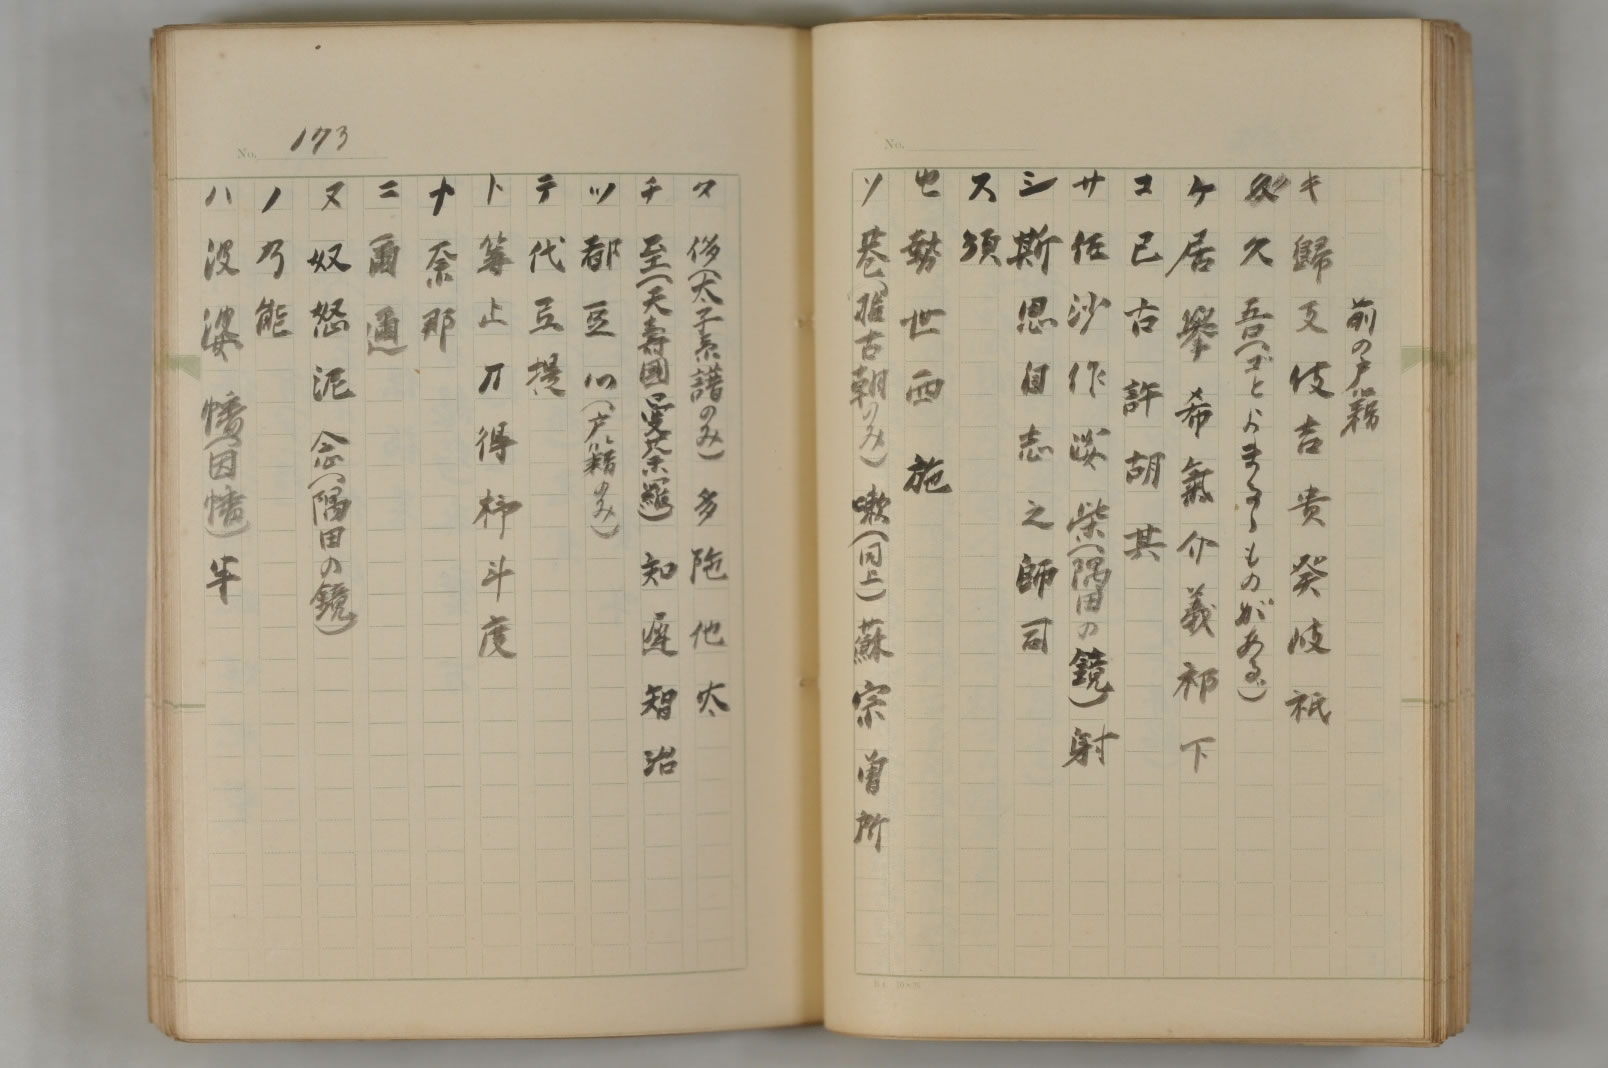 No.
前の戸籍
キ 歸 支 伎 吉 貴 癸 岐 祇
久 吾(ゴとよまるゝものがある)
ケ 居 擧 希 氣 介 義 祁 下
コ 己 古 許 胡 其
サ 佐 沙 作 娑 柴(隅田の鏡) 射
シ 斯 思 自 志 之 師 司
ス 須
セ 勢 世 西 施
ソ 巷(推古朝のみ) 嗽(同上) 蘇 宗 曽 所
No. 173
タ 侈(太子系譜のみ) 多 陁 他 太
チ 至(天壽國曼荼羅) 知 遲 智 治
ツ 都 豆 川(戸籍のみ)
テ 代 豆 提
ト 等 止 刀 得 杼 斗 度
ナ 奈 那
ニ 爾 邇
ヌ 奴 怒 泥 念(隅田の鏡)
ノ 乃 能
ハ 波 婆 幡(因幡) 半